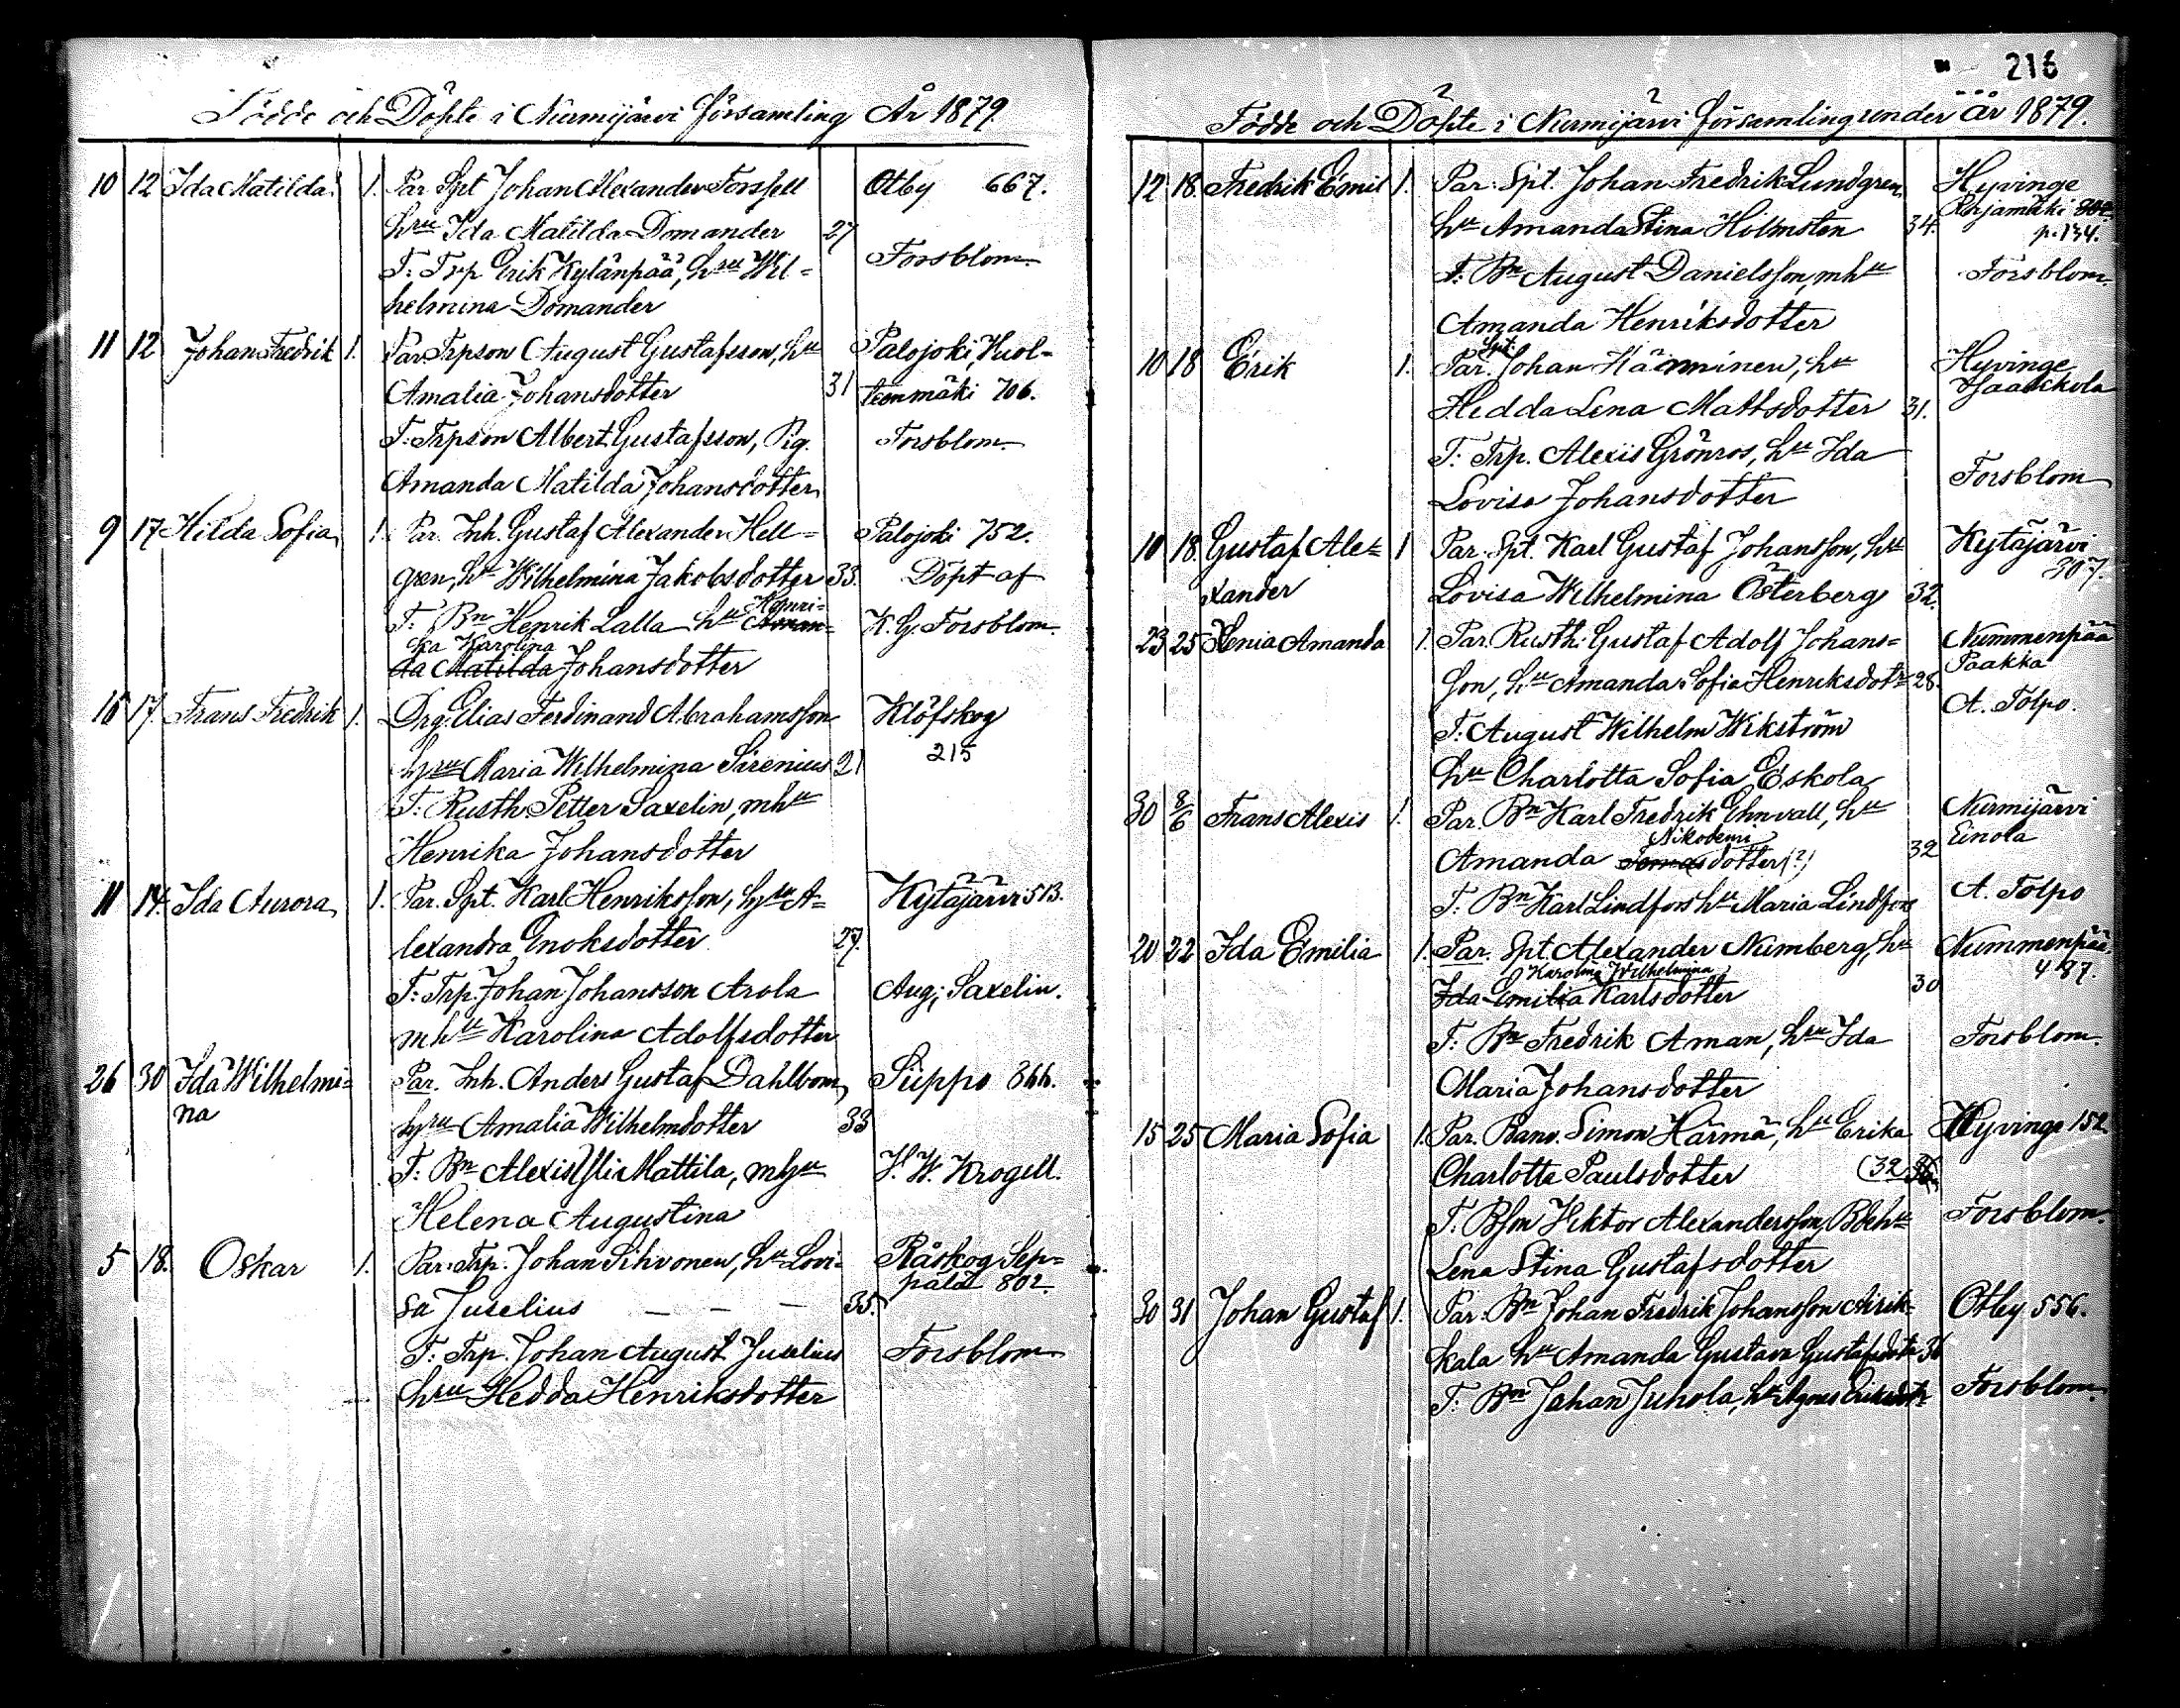 216
Födde och Döpte i Nurmijärvi församling År 1879.
10 12 Ida Matilda 1. Par Spt Johan Alexander Forsfell Otby 667.
hru Ida Matilda Domander 27
T: Trp Erik Kylänpää, hru Wil= Forsblom.
helmina Domander
11 12 Johan Fredrik 1. Par. Trpson August Gustafsson, hu Palojoki, Huol=
Amalia Johansdotter 31 teenmäki 706.
T: Trpson Albert Gustafsson, Pig. Forsblom.
Amanda Matilda Johansdotter
9 17 Hilda Sofia 1. Par. Inh. Gustaf Alexander Hell= Palojoki 752.
gren, hu Wilhelmina Jakobsdotter 33. Döpt af
T: Bn Henrik Lalla hu Henri= Aman= K. G. Forsblom.
ka Karolina
da Matilda Johansdotter
16 17 Frans Fredrik 1. Drg. Elias Ferdinand Abrahamsson Klöfskog
hyru Maria Wilhelmina Sirenius 21 215
T: Rusth. Petter Saxelin, mhu
Henrika Johansdotter
11 14. Ida Aurora 1. Par. Spt. Karl Henriksson, hyru A= Kytäjärvi 513.
lexandra Enoksdotter 27.
T: Trp. Johan Johansson Arola Aug; Saxelin.
mhu Karolina Adolfsdotter
26 30 Ida Wilhelmi= Par. Inh. Anders Gustaf Dahlbom, Siippo 366.
na hyru Amalia Wilhelmsdotter 33
T: Bn Alexis Yli Mattila, mhyu H. W. Krogell.
Helena Augustina
5 18. Oskar 1. Par. Trp. Johan Sihvonen, hu Lovi= Råskog Sep=
pälä 802.
sa Juselius — — — 35.
T: Trp. Johan August Juselius Forsblom
hru Hedda Henriksdotter
Födde och Döpte i Nurmijärvi församling under år 1879.
12 18. Fredrik Emil 1. Par: Spt. Johan Fredrik Lundgren, Hyvinge
hu Amanda Stina Holmsten 34. p. 134.
T: Bn August Danielsson, mhu Forsblom.
Amanda Henriksdotter
10 18 Erik 1. Par. Spt. Johan Hänninen, hu Hyvinge
Hedda Lena Mattsdotter 31.
T: Trp. Alexis Grönros, hu Ida
Lovisa Johansdotter Forsblom
10 18. Gustaf Ale= 1 Par. Spt. Karl Gustaf Johansson, hu Kytäjärvi
xander Lovisa Wilhelmina Österberg 32. 307.
23 25 Xenia Amanda 1. Par. Rusth. Gustaf Adolf Johans= Nummenpää
son, hu Amanda Sofia Henriksdotr 28. Paakka
T: August Wilhelm Wikström A. Tolpo.
hu Charlotta Sofia Eskola
30 8/6 Frans Alexis 1. Par. Bn Karl Fredrik Ehnvall, hu Nurmijärvi
Nikodemi Einola
Amanda Tomasdotter (?) 32
T: Bn Karl Lindfors hu Maria Lindfors A. Tolpo
20 22 Ida Emilia 1. Par. Spt. Alexander Numberg, hu Nummenpää
Karolina Wilhelmina 487.
Ida Emilia Karlsdotter 30
T: Bn Fredrik Aman, hu Ida Forsblom.
Maria Johansdotter
15 25 Maria Sofia 1. Par. Banv. Simon Härmä, hu Erika Hyvinge 152
Charlotta Paulsdotter (32
T: Bson Viktor Alexandersson, Forsblom.
Lena Stina Gustafsdotter
30 31 Johan Gustaf 1. Par. Bn Johan Fredrik Johansson Airik= Otby 556.
kala hu Amanda Gustava Gustafsdotr 36
T: Bn Johan Juhola, hu Agnes Eriksdotr Forsblom.